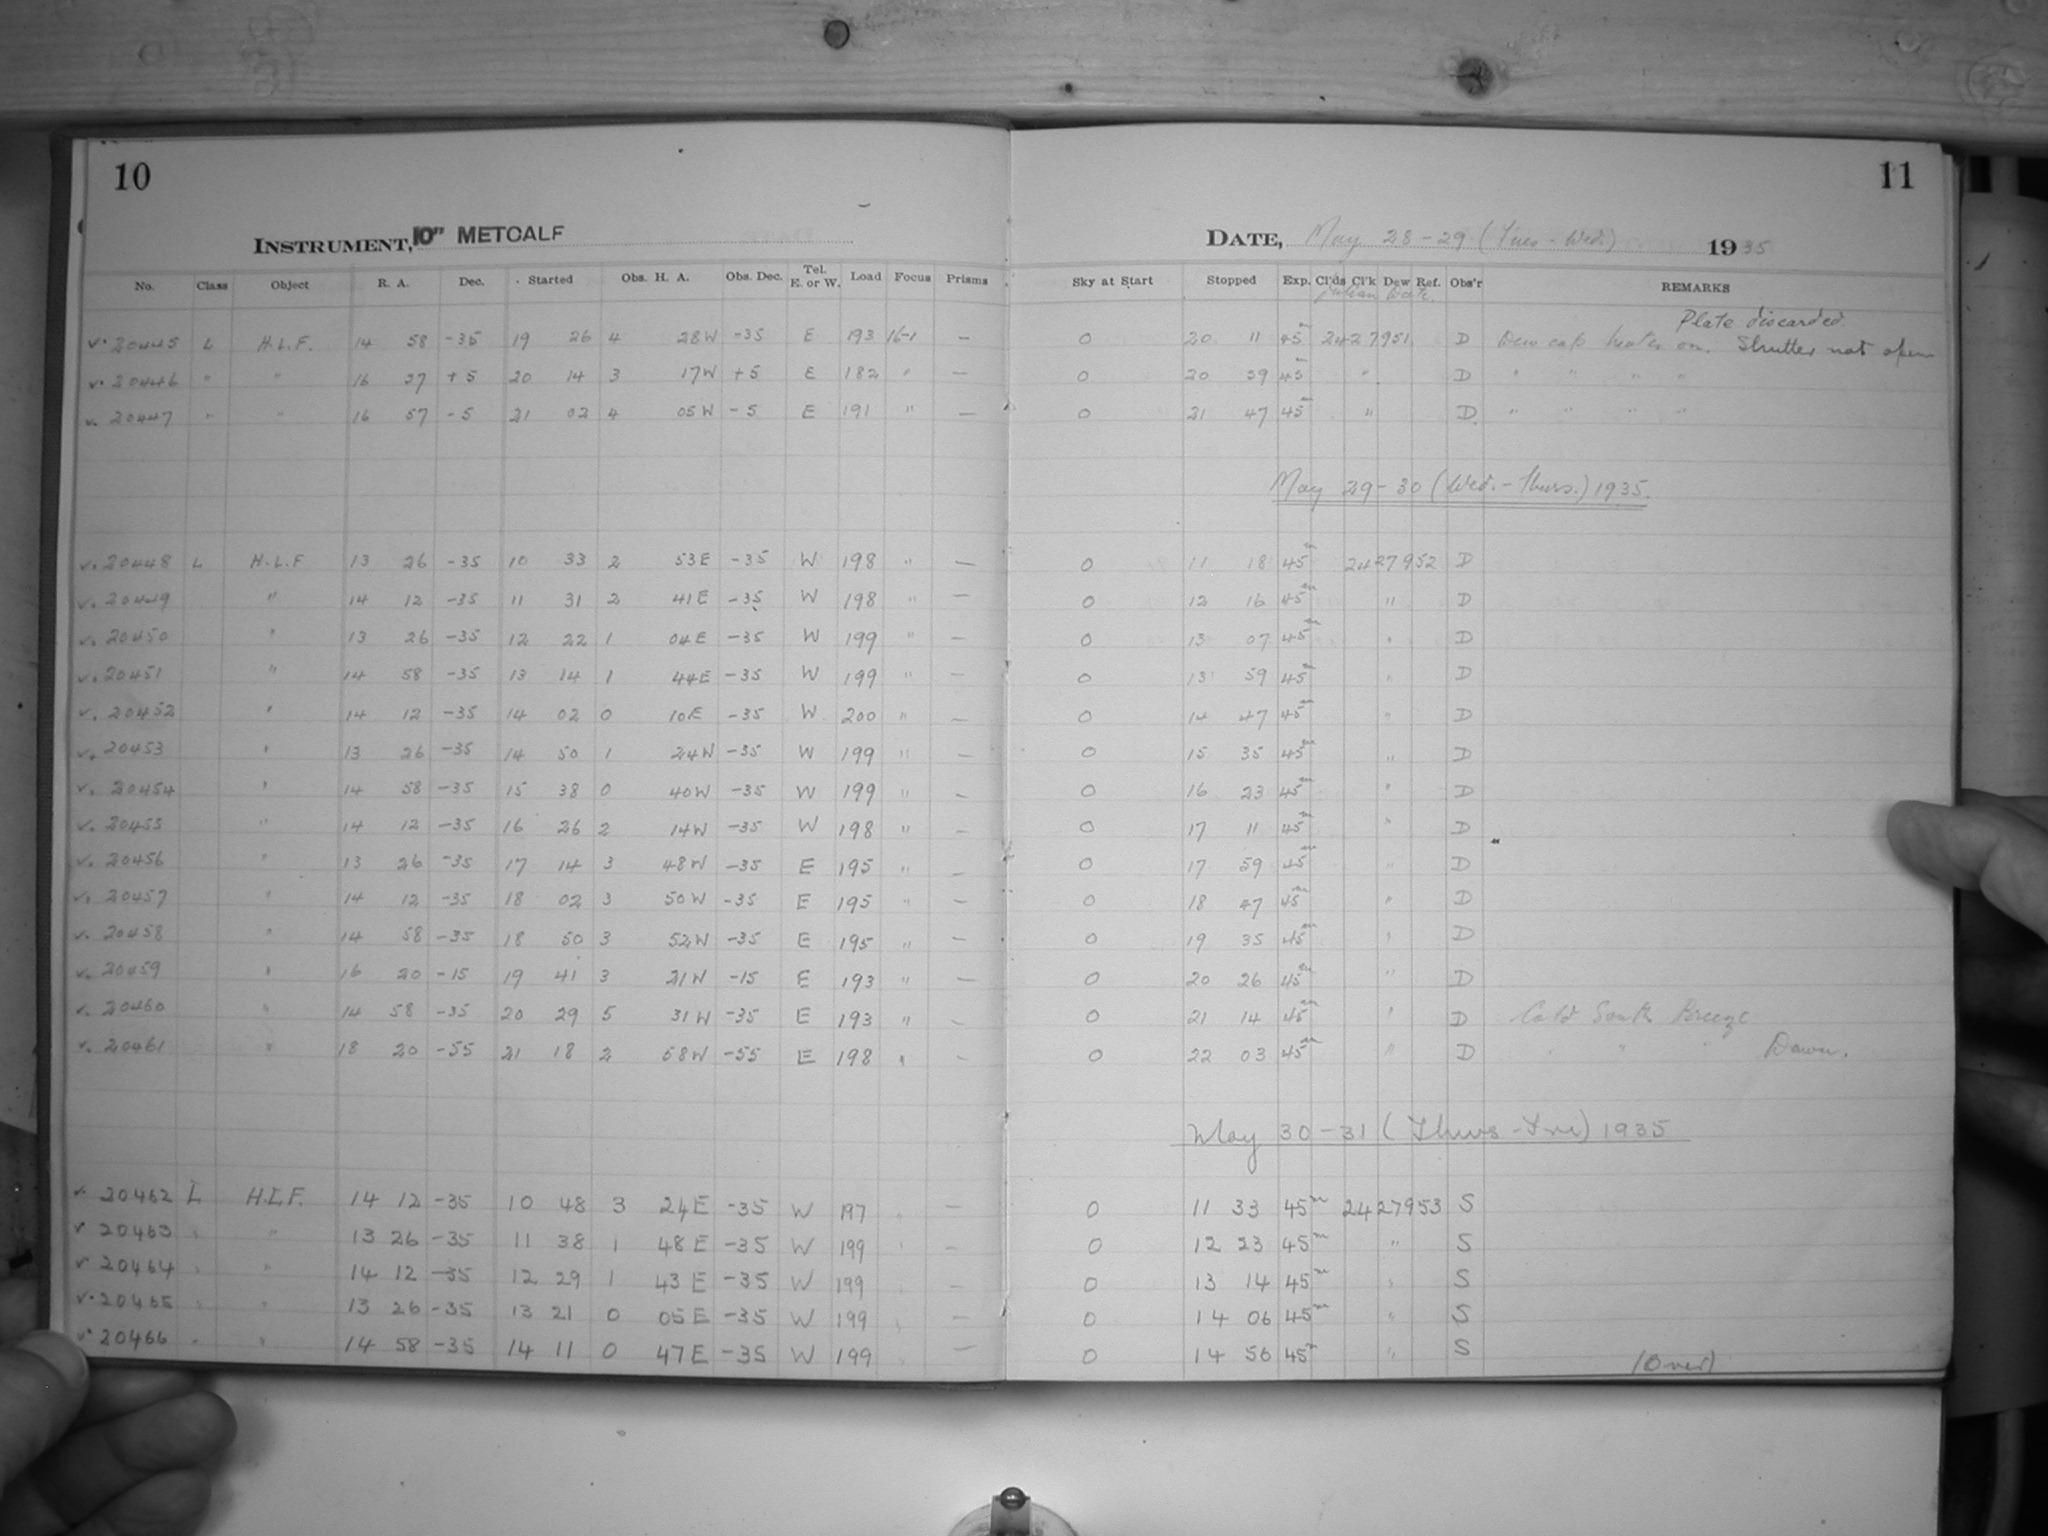 10
11
INSTRUMENT, 10" METCALF
DATE, May 28-29 (Tues-Wed.) 1935
No. Class Object R. A. Dec. Started Obs. H. A. Obs. Dec. Tel. E. or W. Load Focus Prisms Sky at Start Stopped Exp. Cl'ds Cl'k Dew Ref. Obs'r REMARKS
Julian Date.
Plate discarded.
v. 20445 L H.L.F. 14 58 -35 19 26 4 28W -35 E 193 16-1 — 0 20 11 45m 2427951 D Dew cap heater on. Shutter not open
v. 20446 " " 16 37 +5 20 14 3 17W +5 E 182 " — 0 20 59 45m " D " " " "
v. 20447 " " 16 57 -5 21 02 4 05W -5 E 191 " — 0 21 47 45m " D. " " " "
May 29-30 (Wed.-Thurs.) 1935.
v. 20448 L H.L.F 13 26 -35 10 33 2 53E -35 W 198 " — 0 11 18 45m 2427952 D
v. 20449 " 14 12 -35 11 31 2 41E -35 W 198 " — 0 12 16 45m " D
v. 20450 " 13 26 -35 12 22 1 04E -35 W 199 " — 0 13 07 45m " D
v. 20451 " 14 58 -35 13 14 1 44E -35 W 199 " — 0 13 59 45m " D
v. 20452 " 14 12 -35 14 02 0 10E -35 W 200 " — 0 14 47 45m " D
v. 20453 " 13 26 -35 14 50 1 24W -35 W 199 " — 0 15 35 45m " D
v. 20454 " 14 58 -35 15 38 0 40W -35 W 199 " — 0 16 23 45m " D
v. 20455 " 14 12 -35 16 26 2 14W -35 W 198 " — 0 17 11 45m " D
v. 20456 " 13 26 -35 17 14 3 48W -35 E 195 " — 0 17 59 45m " D
v. 20457 " 14 12 -35 18 02 3 50W -35 E 195 " — 0 18 47 45m " D
v. 20458 " 14 58 -35 18 50 3 52W -35 E 195 " — 0 19 35 45m " D
v. 20459 " 16 20 -15 19 41 3 21W -15 E 193 " — 0 20 26 45m " D
v. 20460 " 14 58 -35 20 29 5 31W -35 E 193 " — 0 21 14 45m " D Cold South Breeze
v. 20461 " 18 20 -55 21 18 2 58W -55 E 198 " — 0 22 03 45m " D " " " Dawn.
May 30-31 (Thurs-Fri) 1935
v. 20462 L H.L.F. 14 12 -35 10 48 3 24E -35 W 197 " — 0 11 33 45m 2427953 S
v 20463 " " 13 26 -35 11 38 1 48E -35 W 199 " — 0 12 23 45m " S
v 20464 " " 14 12 -35 12 29 1 43E -35 W 199 " — 0 13 14 45m " S
v. 20465 " " 13 26 -35 13 21 0 05E -35 W 199 " — 0 14 06 45m " S
v. 20466 " " 14 58 -35 14 11 0 47E -35 W 199 " — 0 14 56 45m " S
(Over)